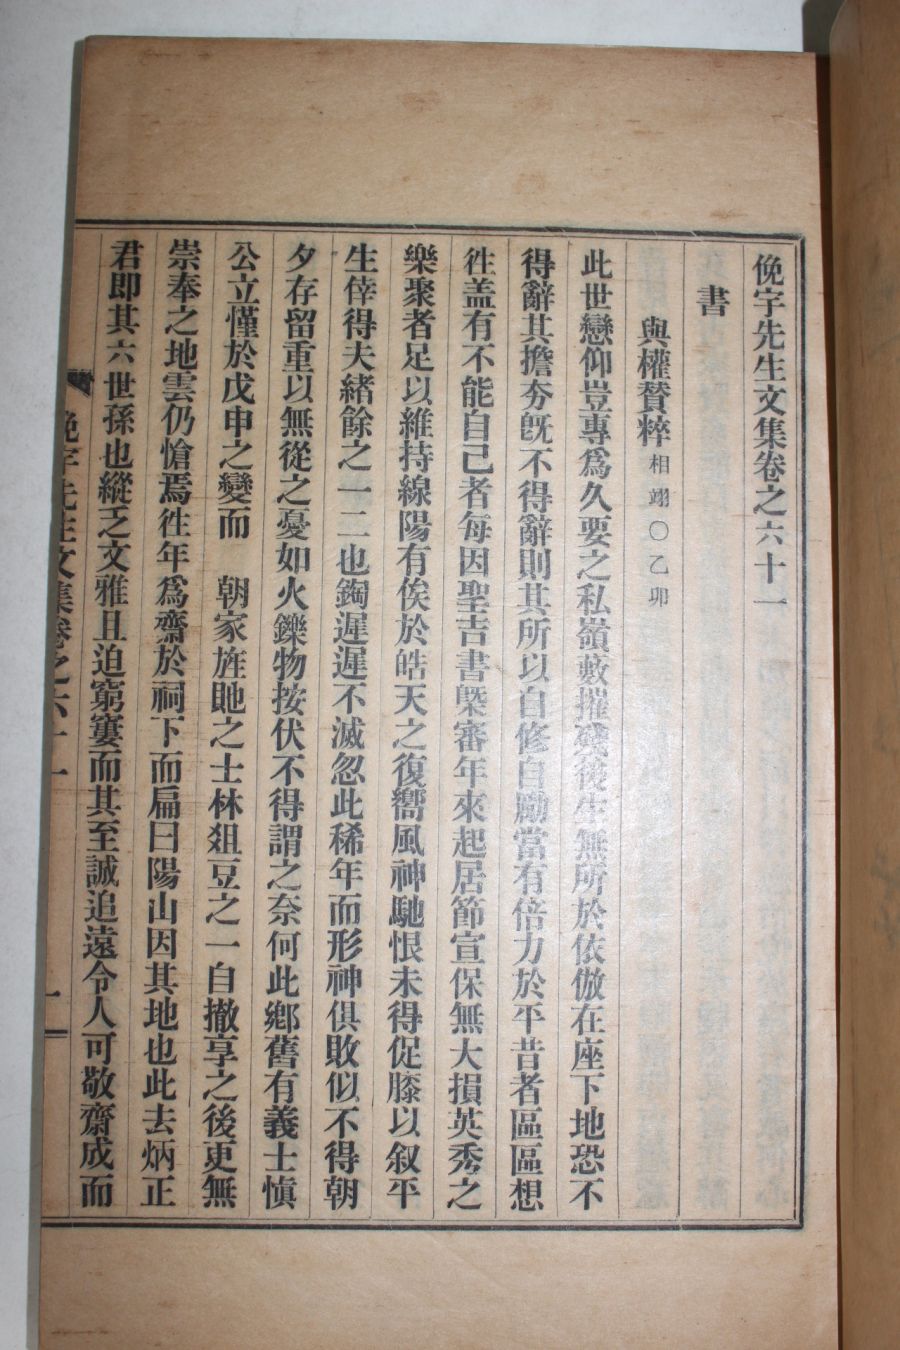 俛宇先生文集卷之六十一
書
與權贊粹相翊〇乙卯
此世戀仰豈專爲久要之私嶺藪摧殘後生無所於依倣在座下地恐不
得辭其擔夯旣不得辭則其所以自修自勵當有倍力於平昔者區區想
徃盖有不能自己者每因聖吉書槩審年來起居節宣保無大損英秀之
樂聚者足以維持線陽有俟於皓天之復嚮風神馳恨未得促膝以叙平
生倖得夫緖餘之一二也鋾遲遲不滅忽此稀年而形神俱敗似不得朝
夕存留重以無從之憂如火鑠物按伏不得謂之奈何此鄉舊有義士愼
公立慬於戊申之變而　朝家旌貤之士林爼豆之一自撤享之後更無
崇奉之地雲仍愴焉徃年爲齋於祠下而扁曰陽山因其地也此去炳正
君即其六世孫也縱乏文雅且迫窮窶而其至誠追遠令人可敬齋成而
俛宇先生文集卷之六十一
一